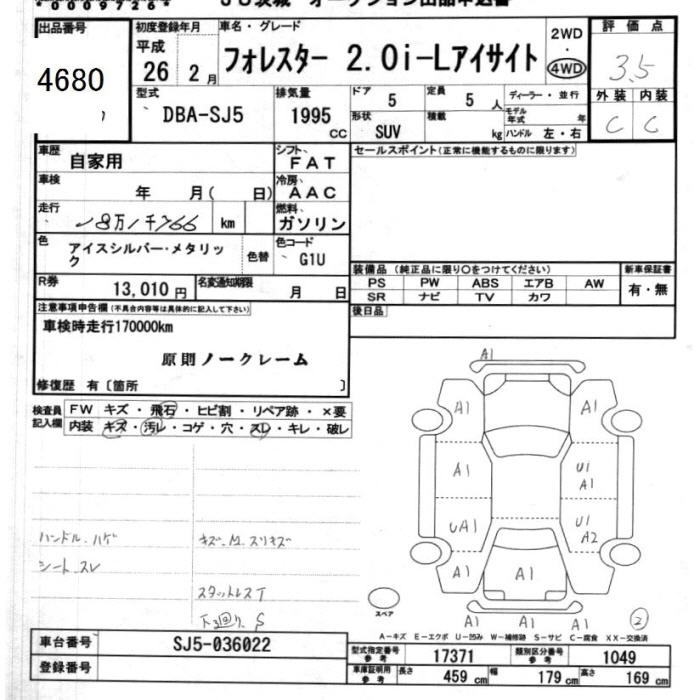 *00097264*
JU茨城 オークション出品申込書
出品番号
4680
初度登録年月
平成
26 2月
車名・グレード
フォレスター 2.0i-Lアイサイト
2WD
・
4WD
評価点
3.5
外装 内装
C C
型式
DBA-SJ5
排気量
1995
cc
ドア 5
定員 5 人
ディーラー・並行
形状 SUV
積載 kg
モデル年式 年
ハンドル 左・右
車歴
自家用
シフト
FAT
セールスポイント(正常に機能するものに限ります)
車検
年 月( 日)
冷房
AAC
走行
km
燃料
ガソリン
色
アイスシルバー・メタリック
色替
色コード
G1U
R券
13,010円
名変通知期限
月 日
装備品 (純正品に限り○をつけてください)
PS PW ABS エアB AW
SR ナビ TV カワ
新車保証書
有・無
後日品
注意事項申告欄(不具合内容等は具体的に記入して下さい)
車検時走行170000km
原則ノークレーム
修復歴 有〔箇所 〕
検査員記入欄
FW キズ・飛石・ヒビ割・リペア跡・×要
内装 キズ・汚レ・コゲ・穴・スレ・キレ・破レ
ハンドル.ハゲ
シート.スレ
スタットレスT
下回り S
A1
A1 A1
A1 U1 A1
UA1 U1 A2
A1 A1 A1
A1 A1 A1
スペア
2
A-キズ E-エクボ U-凹み W-補修跡 S-サビ C-腐食 XX-交換済
車台番号
SJ5-036022
登録番号
型式指定番号 参考
17371
類別区分番号 参考
1049
車庫証明用 参考
長さ 459 cm
幅 179 cm
高さ 169 cm